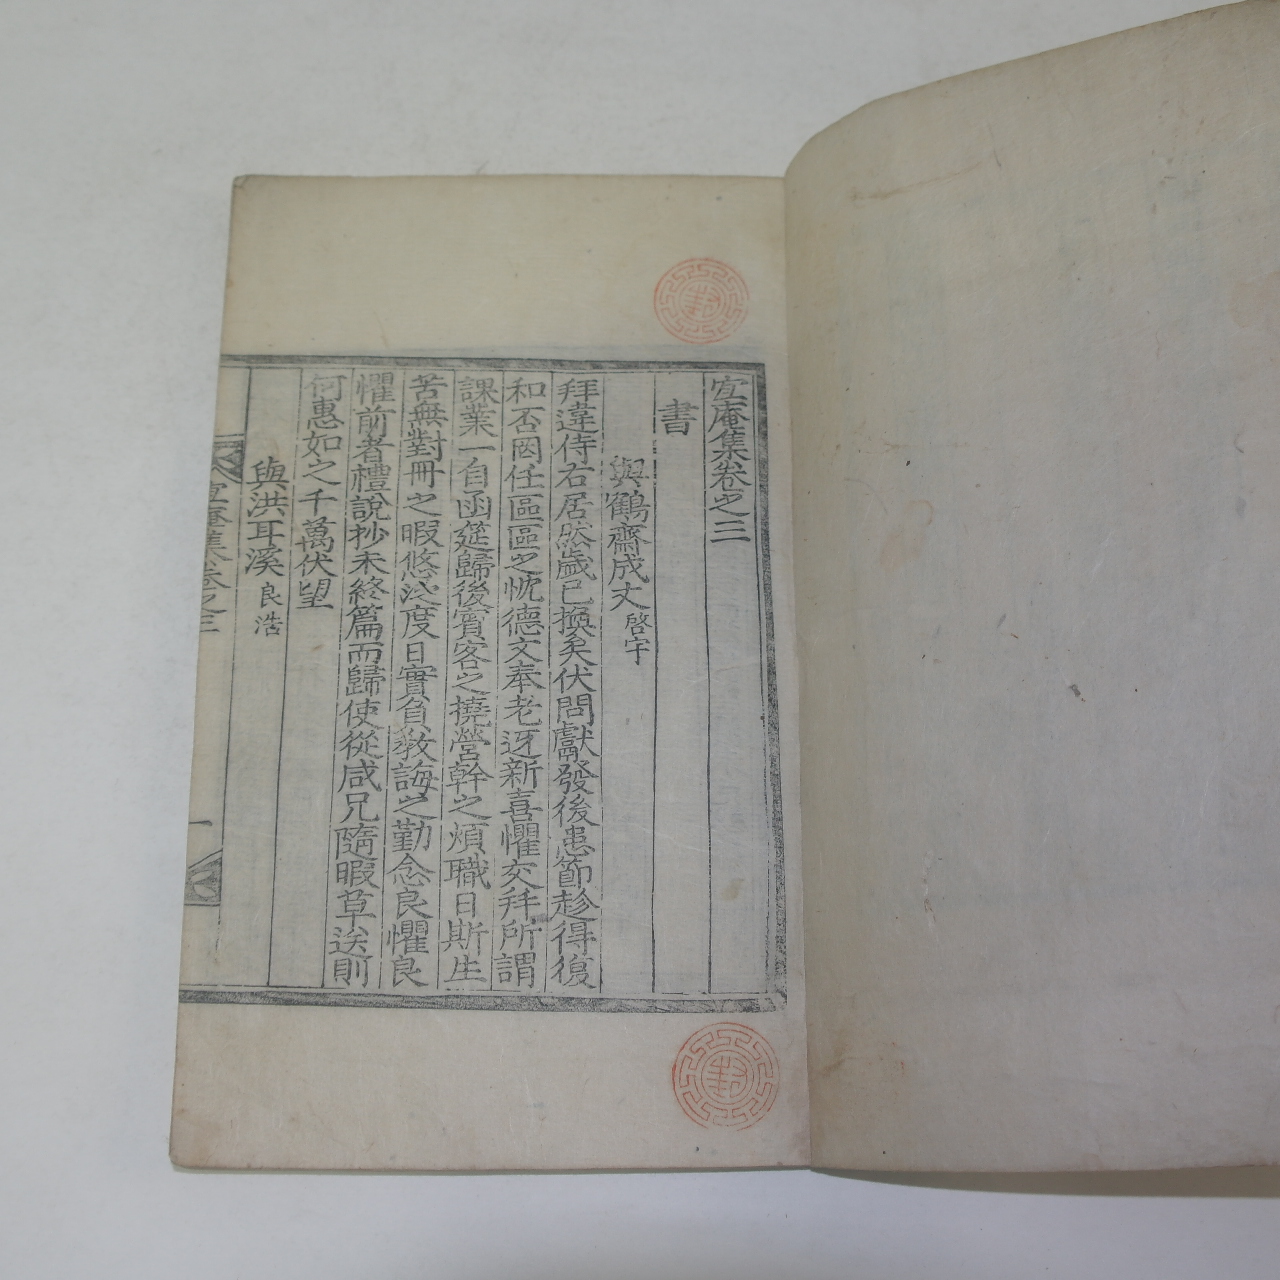 宜庵集卷之三
書
與鶴齋成丈啓宇
拜違侍右居然歲已換矣伏問獻發後患節趁得復
和否罔任區區之忱德文奉老迓新喜懼交拜所謂
課業一自函筵歸後賓客之撓營幹之煩職日斯生
苦無對冊之暇悠泛度日實負教誨之勤念良懼良
懼前者禮說抄未終篇而歸使從咸兄隨暇草送則
何惠如之千萬伏望
與洪耳溪良浩
宜庵集卷之三
一